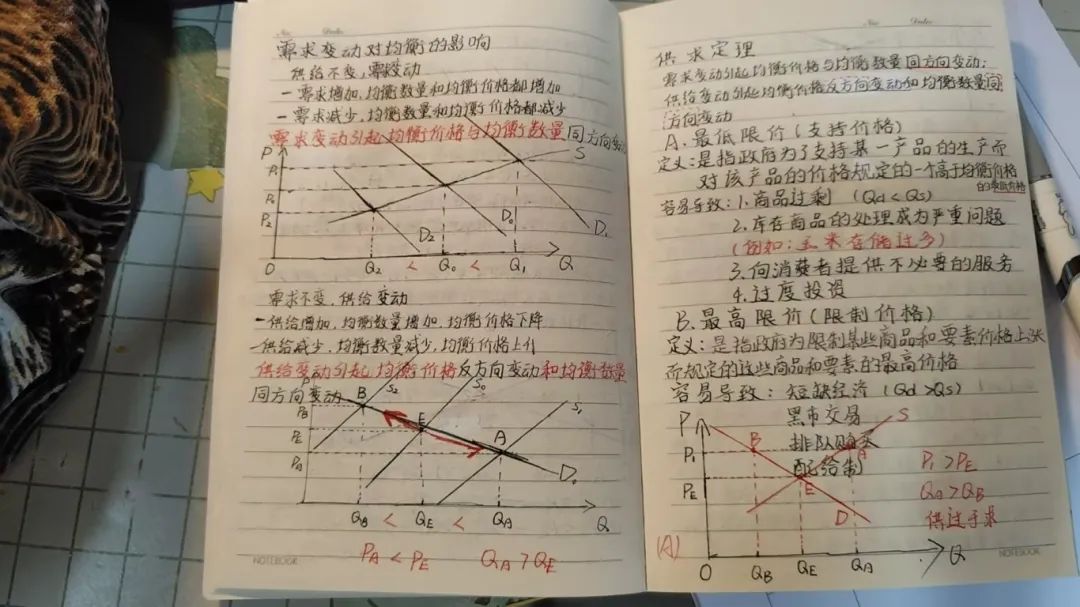 需求变动对均衡的影响
供给不变,需求变动
一需求增加,均衡数量和均衡价格都增加
一需求减少,均衡数量和均衡价格都减少
需求变动引起均衡价格与均衡数量同方向变动
P
S
P₁
P₀
P₂
D₂
D₀
D₁
O
Q₂ < Q₀ < Q₁ Q
需求不变,供给变动
一供给增加,均衡数量增加,均衡价格下降
一供给减少,均衡数量减少,均衡价格上升
供给变动引起均衡价格反方向变动和均衡数量
同方向变动
P
S₂
S₀
S₁
B
P_B
E
P_E
A
P_A
D₀
Q_B < Q_E < Q_A Q
P_A < P_E Q_A > Q_E
NOTEBOOK
No Date
供求定理
需求变动引起均衡价格与均衡数量同方向变动;
供给变动引起均衡价格反方向变动和均衡数量同
方向变动
A.最低限价(支持价格)
定义:是指政府为了支持某一产品的生产而
对该产品的价格规定的一个高于均衡价格
的最低价格
容易导致:1.商品过剩 (Qd<Qs)
2.库存商品的处理成为严重问题
(例如:玉米存储过多)
3.向消费者提供不必要的服务
4.过度投资
B.最高限价(限制价格)
定义:是指政府为限制某些商品和要素价格上涨
而规定的这些商品和要素的最高价格
容易导致:短缺经济 (Qd>Qs)
黑市交易
排队购买
配给制
P
S
P₁
B
A
P_E
E
D
P₁>P_E
Q_A>Q_B
供过于求
(A)
O Q_B Q_E Q_A Q
NOTEBOOK